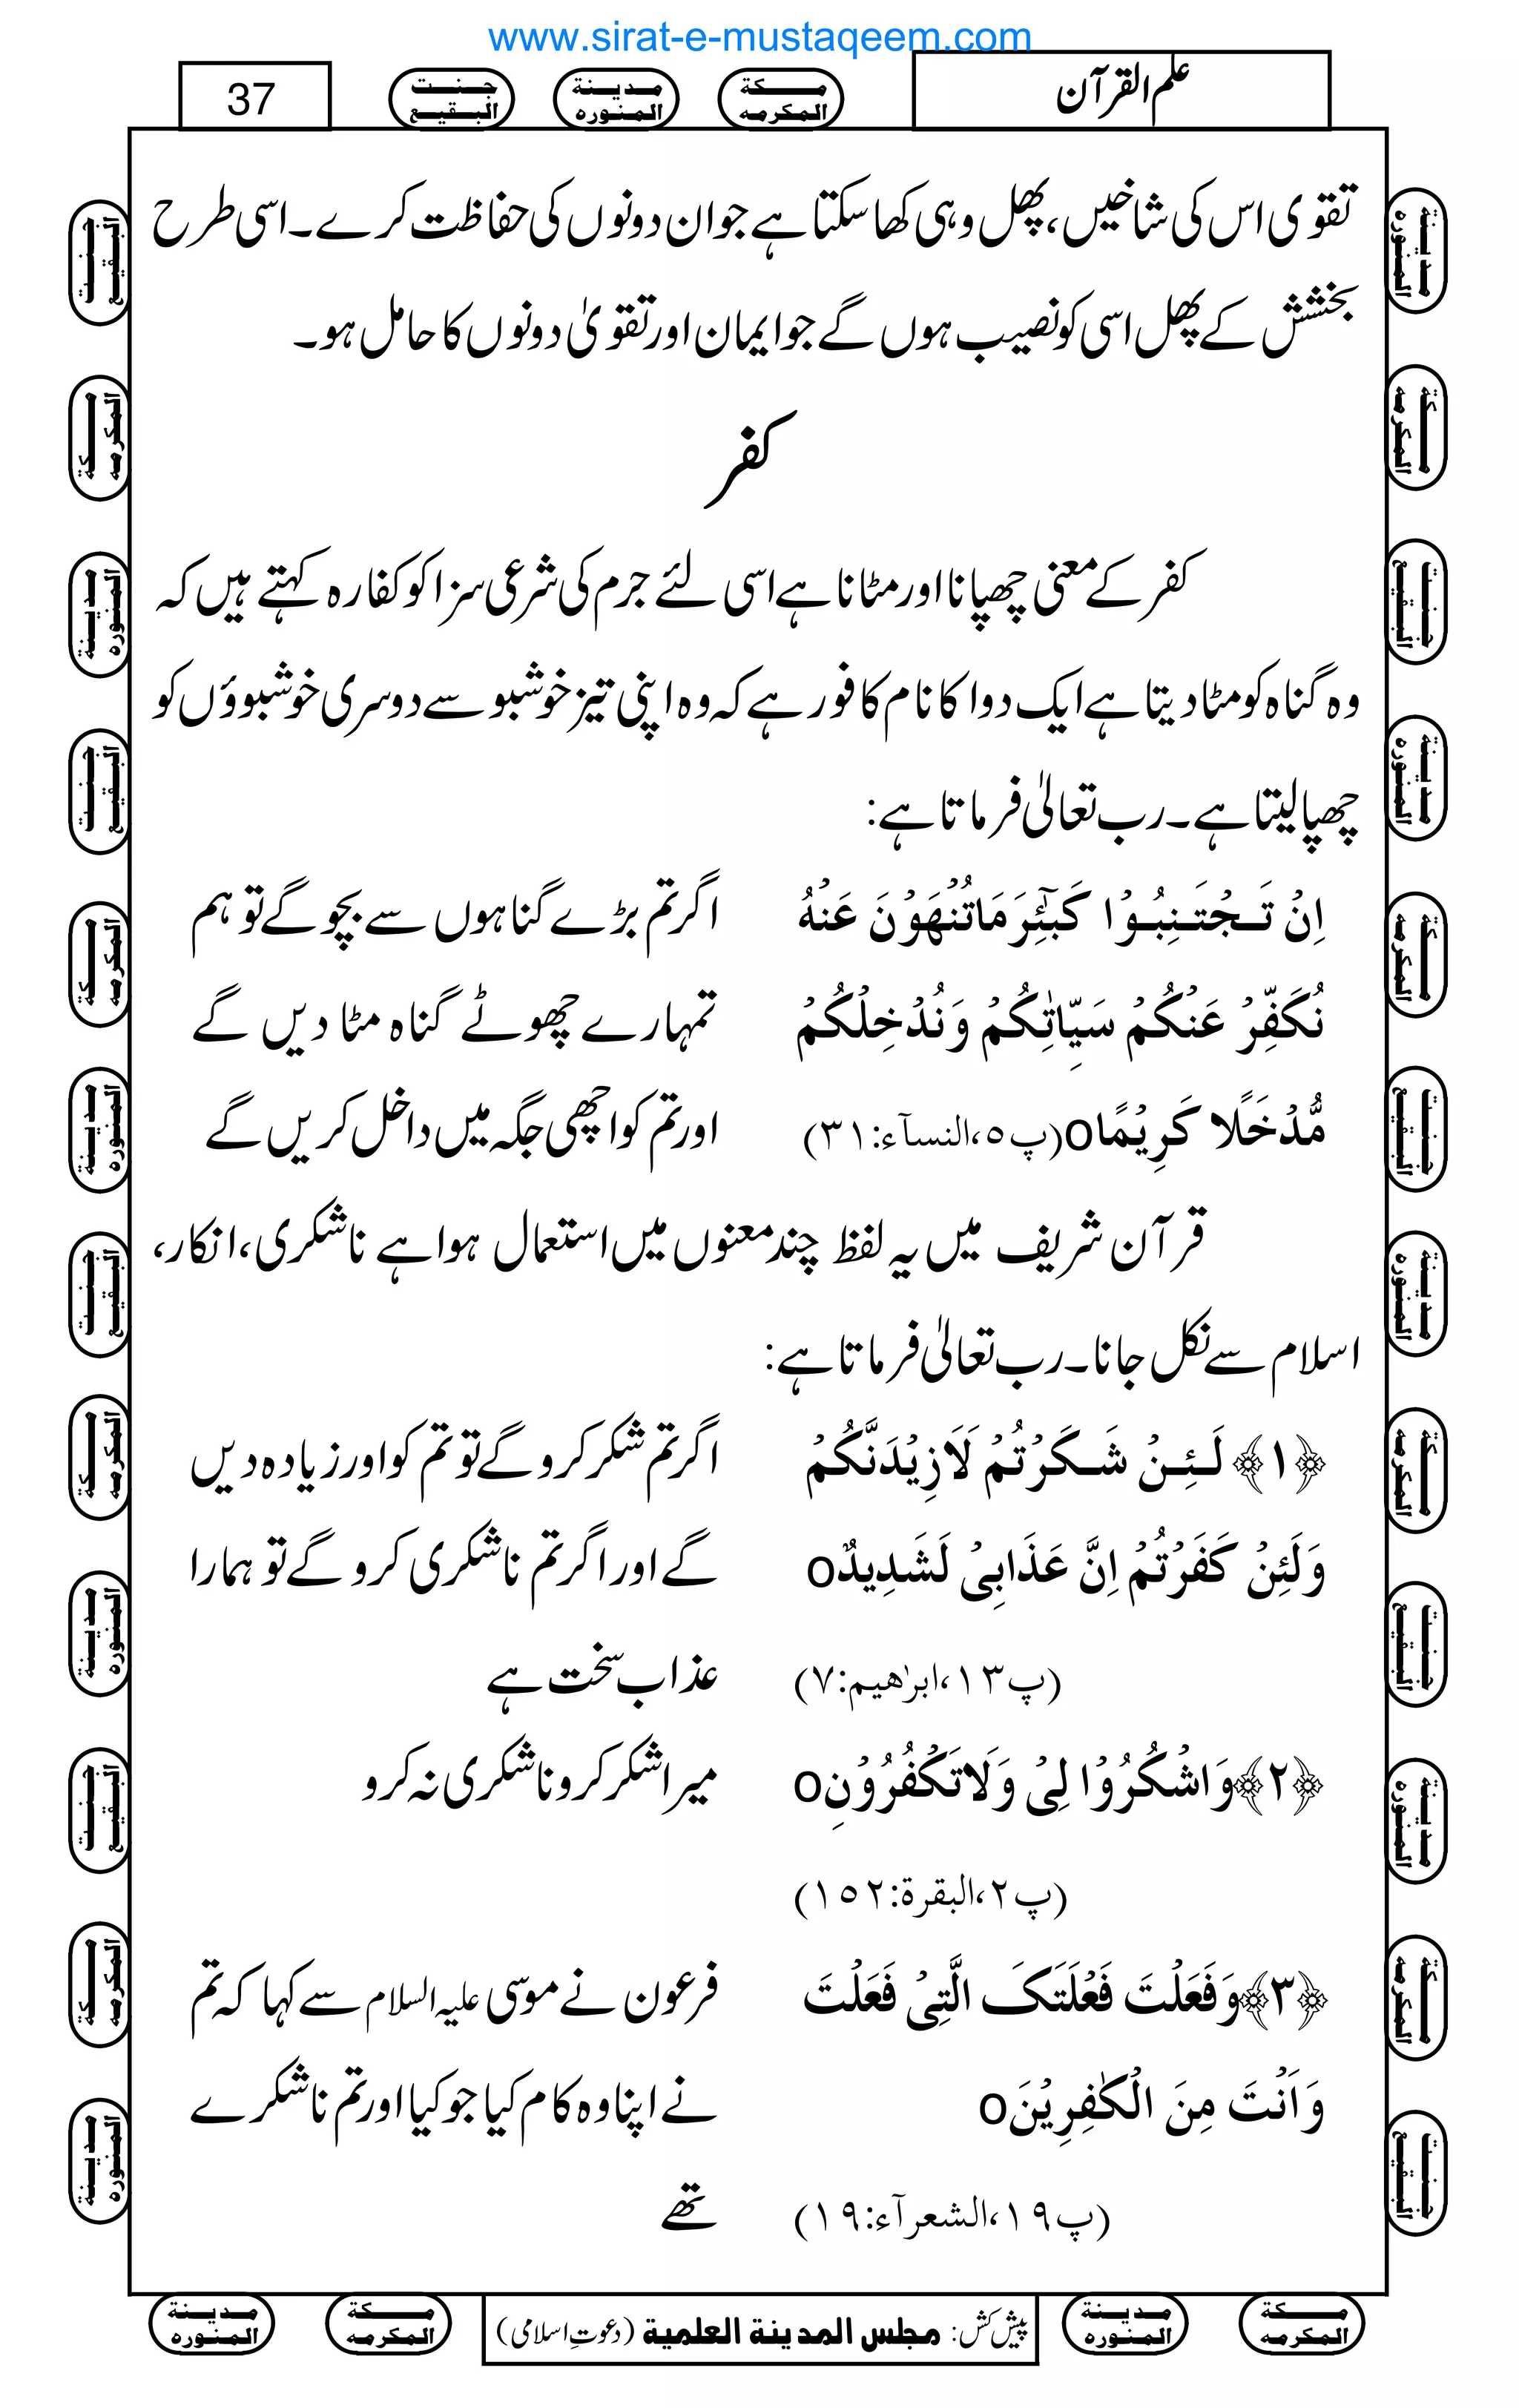 www.sirat-e-mustaqeem.com
علم القرآن
مكة المكرمه
مدينة المنوره
جنت البقيع
37
تقوی اس کی شاخیں، پھل وہی کھاسکتا ہے جوان دونوں کی حفاظت کرے۔ اسی طرح
بخشش کے پھل اسی کو نصیب ہوں گے جو ایمان اور تقویٰ دونوں کا حامل ہو۔
کفر
کفر کے معنی چھپانا اور مٹانا ہے اسی لئے جرم کی شرعی سزا کو کفارہ کہتے ہیں کہ
وہ گناہ کو مٹا دیتا ہے ایک دوا کا نام کافور ہے کہ وہ اپنی تیز خوشبو سے دوسری خوشبوؤں کو
چھپا لیتا ہے۔ رب تعالیٰ فرماتا ہے:
اِنْ تَجْتَنِبُوْا كَبَآئِرَمَاتُنْهَوْنَ عَنْهُ
اگر تم بڑے گناہوں سے بچو گے تو ہم
نُكَفِّرْ عَنْكُمْ سَيِّاٰتِكُمْ وَنُدْخِلْكُمْ
تمہارے چھوٹے گناہ مٹا دیں گے
مُّدْخَلًا كَرِيْمًاo(پ٥،النسآء:٣١)
اور تم کو اچھی جگہ میں داخل کریں گے
قرآن شریف میں یہ لفظ چند معنوں میں استعمال ہوا ہے ناشکری، انکار،
اسلام سے نکل جانا۔ رب تعالیٰ فرماتا ہے:
﴿١﴾ لَئِنْ شَكَرْتُمْ لَاَزِيْدَنَّكُمْ
اگر تم شکر کرو گے تو تم کو اور زیادہ دیں
وَلَئِنْ كَفَرْتُمْ اِنَّ عَذَابِىْ لَشَدِيدٌo
گے اور اگر تم ناشکری کرو گے تو ہمارا
(پ١٣،ابرٰهيم:٧)
عذاب سخت ہے
﴿٢﴾وَاشْكُرُوْا لِىْ وَلَاتَكْفُرُوْنِo
میرا شکر کرو ناشکری نہ کرو
(پ٢،البقرة:١٥٢)
﴿٣﴾وَفَعَلْتَ فَعْلَتَكَ الَّتِىْ فَعَلْتَ
فرعون نے موسیٰ علیہ السلام سے کہا کہ تم
وَاَنْتَ مِنَ الْكٰفِرِيْنَo
نے اپنا وہ کام کیا جو کیا اور تم ناشکرے
(پ١٩،الشعرآء:١٩)
تھے
پیش کش: مجلس المدينة العلمية (دعوتِ اسلامی)
مكة المكرمه
مدينة المنوره